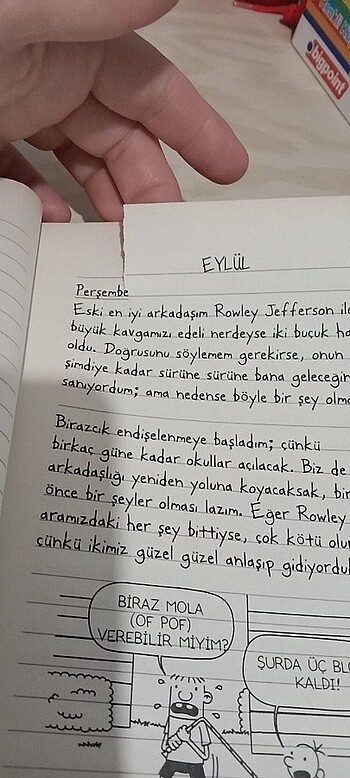 bigpoint
EYLÜL
Perşembe
Eski en iyi arkadaşım Rowley Jefferson ile
büyük kavgamızı edeli nerdeyse iki buçuk
oldu. Doğrusunu söylemem gerekirse, onun
şimdiye kadar sürüne sürüne bana geleceğin
sanıyordum; ama nedense böyle bir şey
Birazcık endişelenmeye başladım; çünkü
birkaç güne kadar okullar açılacak. Biz de
arkadaşlığı yeniden yoluna koyacaksak,
önce bir şeyler olması lazım. Eğer Rowley
aramızdaki her şey bittiyse, çok kötü
çünkü ikimiz güzel güzel anlaşıp
BİRAZ MOLA
(OF POF)
VEREBİLİR MİYİM?
ŞURDA ÜÇ
KALDI!